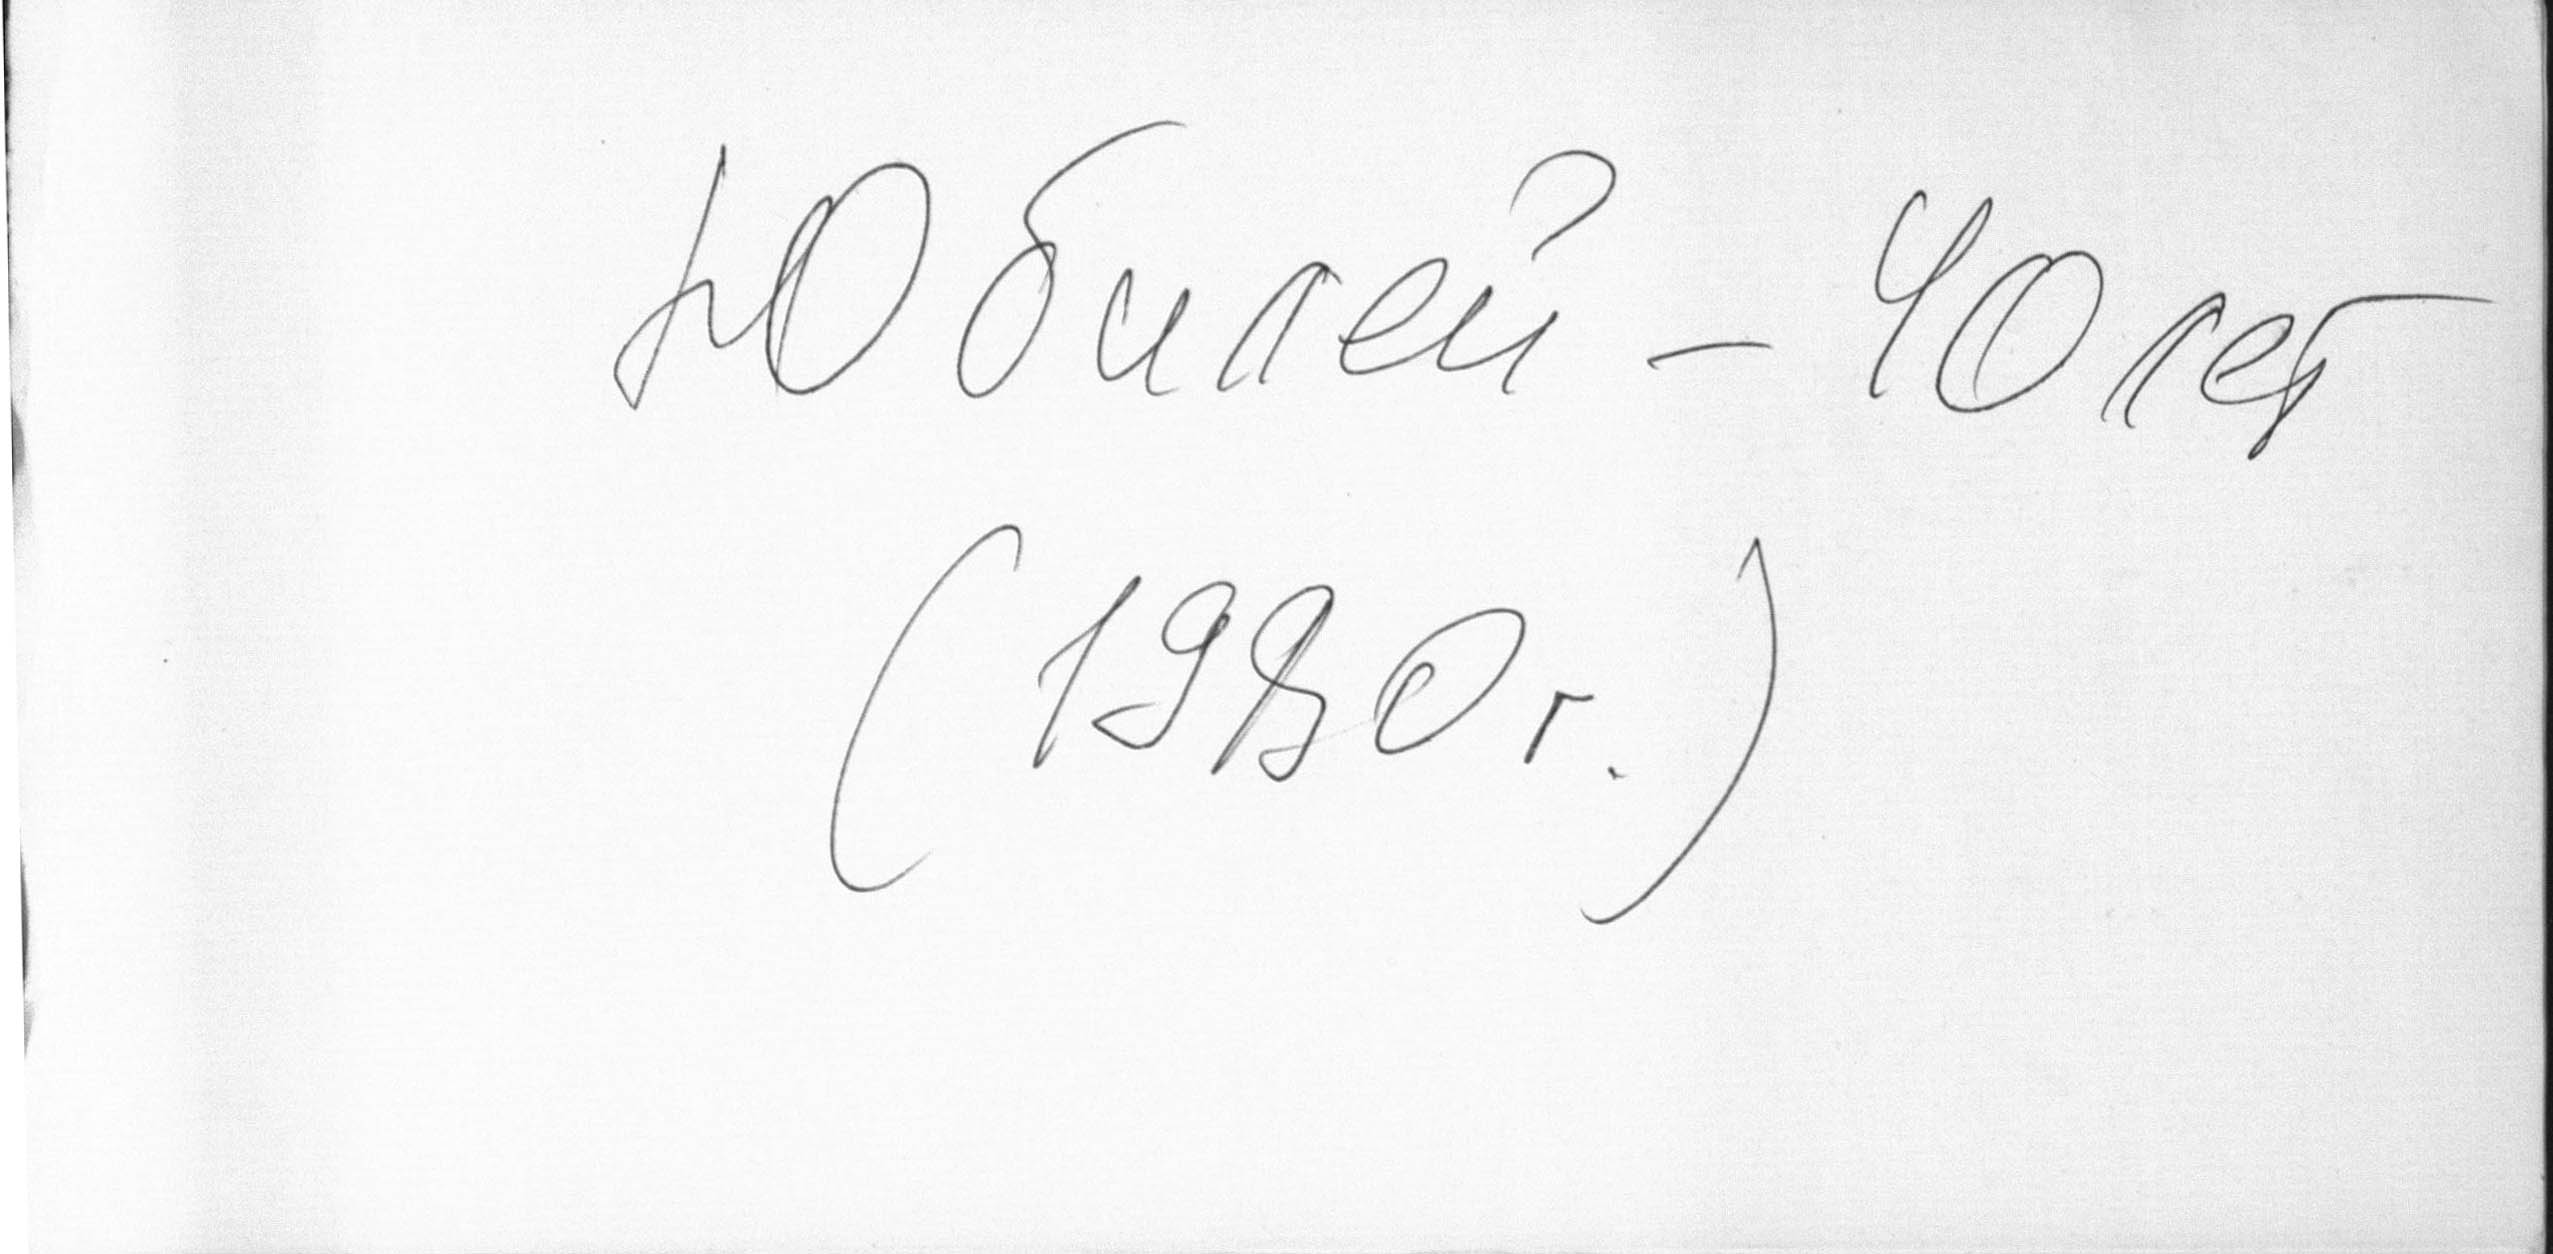 Юбилей - 40 лет
(1980 г.)